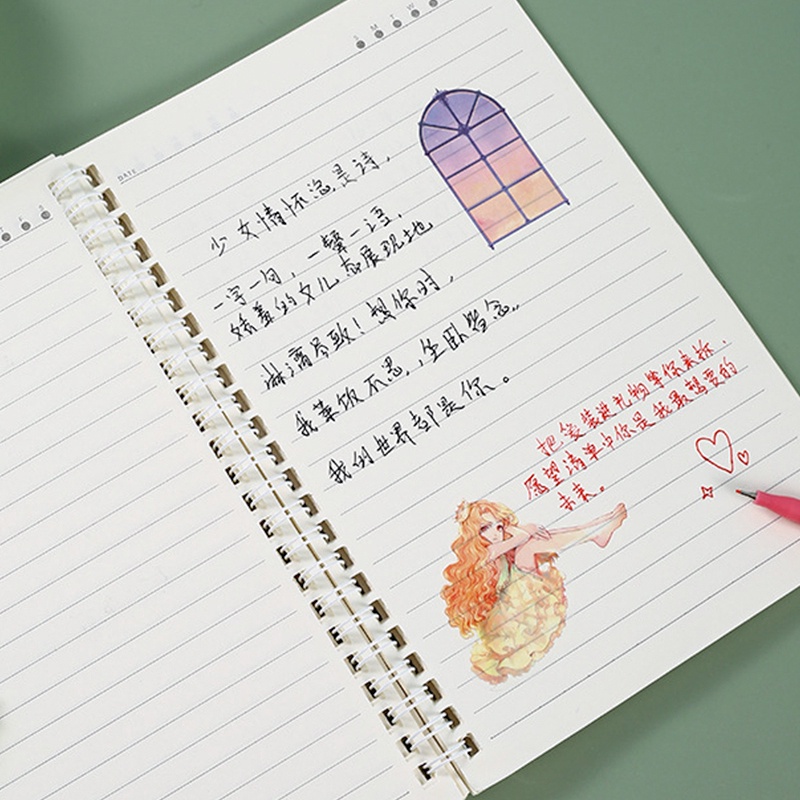 S M T W
DATE
少女情怀总是诗，
一字一句，一颦一语，
娇羞的女儿态展现地
淋漓尽致！想你时，
我茶饭不思，坐卧皆念。
我的世界都是你。
把爱装进礼物等你来拆，
愿望清单中你是我最想要的
未来。